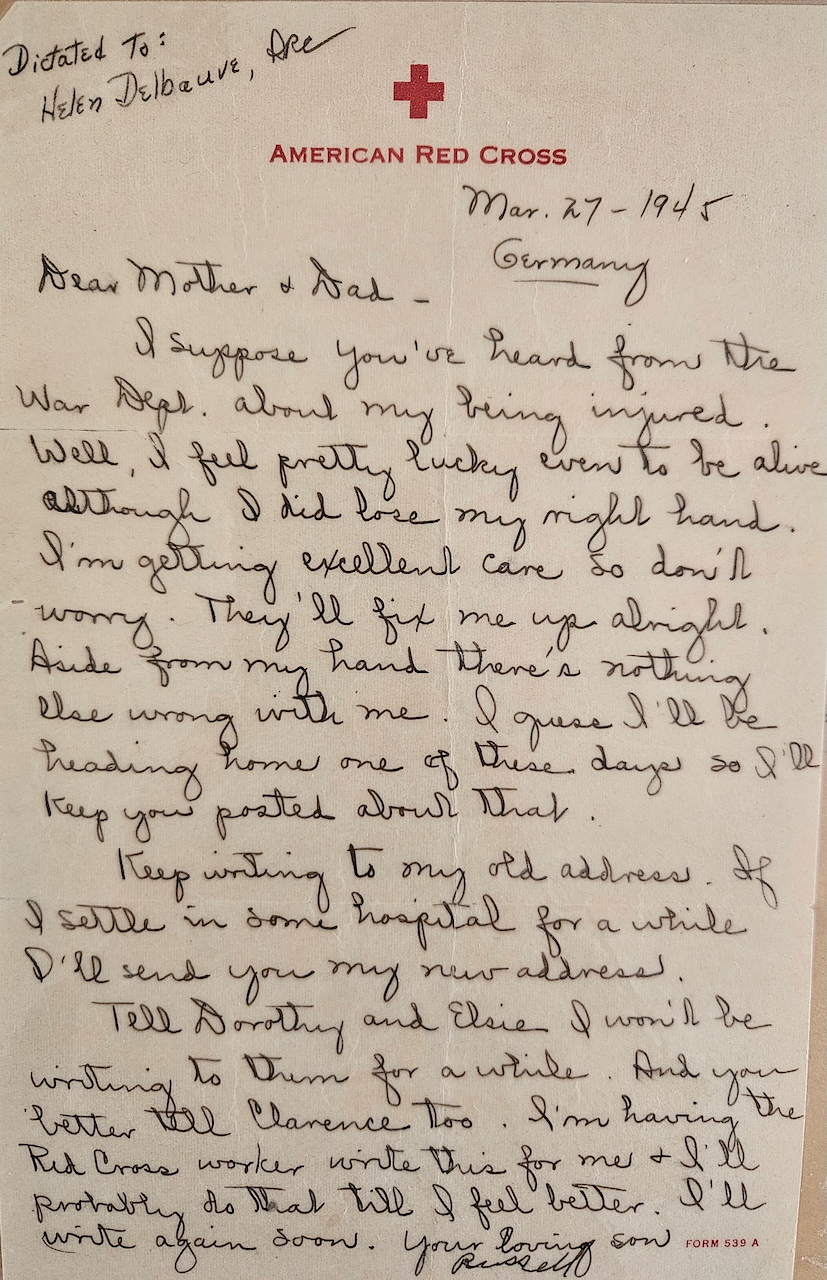 Dictated To:
Helen Delbauve, ARC
AMERICAN RED CROSS
Mar. 27 - 1945
Germany
Dear Mother & Dad -
I suppose you've heard from the
War Dept. about my being injured.
Well, I feel pretty lucky even to be alive
although I did lose my right hand.
I'm getting excellent care so don't
worry. They'll fix me up alright.
Aside from my hand there's nothing
else wrong with me. I guess I'll be
heading home one of these days so I'll
keep you posted about that.
Keep writing to my old address. If
I settle in some hospital for a while
I'll send you my new address.
Tell Dorothy and Elsie I won't be
writing to them for a while. And you
better tell Clarence too. I'm having the
Red Cross worker write this for me & I'll
probably do that till I feel better. I'll
write again soon. Your loving son
Russell
FORM 539 A